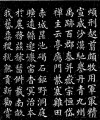 煩刑起翦頗牧用軍最精
宣威沙漠馳譽丹青九州
禹跡百郡秦并嶽宗恒岱
禪主云亭雁門紫塞雞田
赤城昆池碣石鉅野洞庭
曠遠綿邈巖岫杳冥治本
於農務茲稼穡俶載南畝
我藝黍稷稅熟貢新勸賞